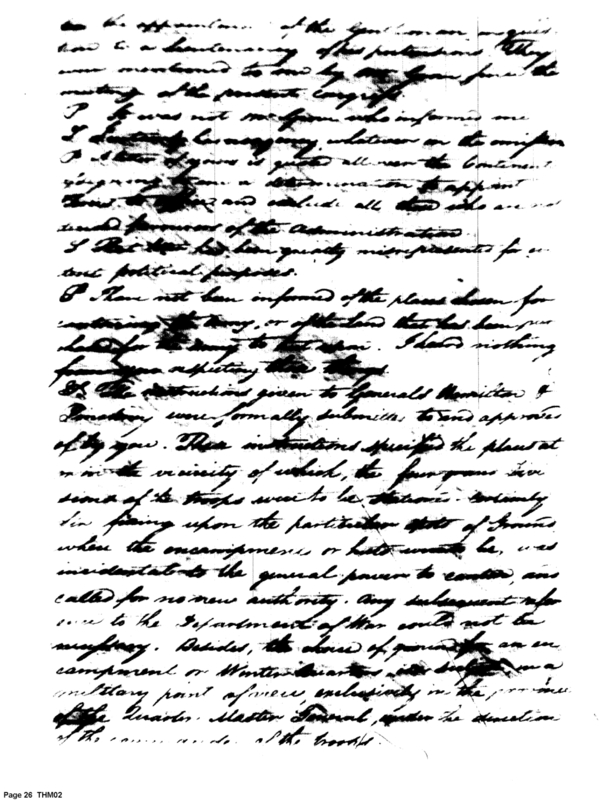 the appointment of the Gentleman in ques
tion to a Lieutenancy of his pretensions. They
were mentioned to me by Mr Gunn since the
meeting of the present congress
P It was not Mr Gunn who informed me
S I no agency whatever in the omission
P A letter of yours is quoted all over the Continent
a determination to appoint
Tories to and exclude all those who are not
favourers of the Administration.
S That has been greatly misrepresented for
political purposes.
P I have not been informed of the places chosen for
the Army, or of the land that has been pur
chased for the Army to I heard nothing
from you respecting these things
S The instructions given to Generals Hamilton &
Pinckney were formally submitted to and approved
of by you. These instructions specified the places at
or in the vicinity of which, the four grand divi
sions of the troops were to be stationed.
fixing upon the particular spots of Ground
where the encampments or huts would be, was
incidental to the general power to canton, and
called for no new authority. Any subsequent refer
ence to the Department of War could not be
necessary. Besides, the choice of ground for an en
campment or Winter Quarters in a
military point of view exclusively in the province
of the Quarter Master General, under the direction
of the of the troops.
Page 26 THM02